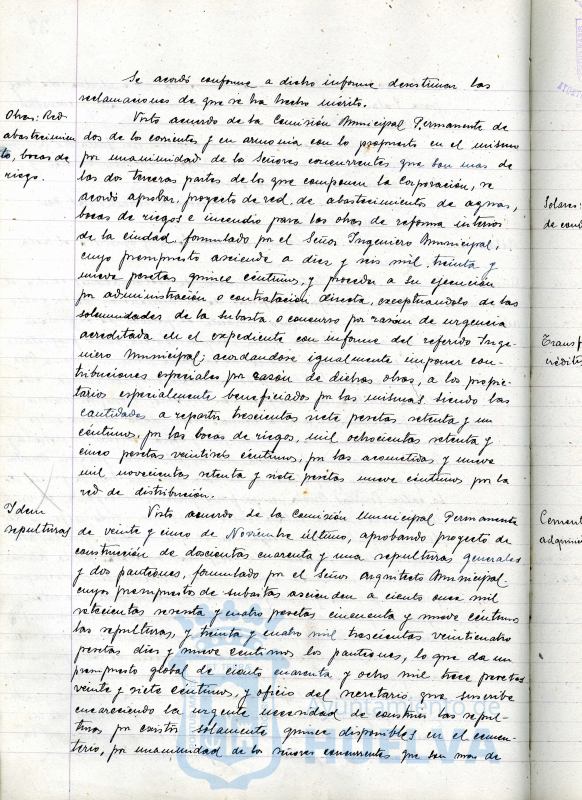 Se acordó conforme a dicho informe desestimar las
reclamaciones de que se ha hecho mérito.
Obras: Red
abastecimien
to, bocas de
riego.
Visto acuerdo de la Comisión Municipal Permanente de
dos de los corrientes y en armonía con lo propuesto en el mismo
por unanimidad de los Señores concurrentes que son mas de
las dos terceras partes de los que componen la Corporación, se
acordó aprobar, proyecto de red, de abastecimientos de aguas,
bocas de riegos e incendio para las obras de reforma interior
de la ciudad, formulado por el Señor Ingeniero Municipal,
cuyo presupuesto asciende a diez y seis mil, treinta y
nueve pesetas quince céntimos, y proceder a su ejecución
por administración, o contratación directa, exceptuándolo de las
solemnidades de la subasta o concurso por razón de urgencia
acreditada en el expediente con informe del referido Inge-
niero Municipal; acordandose igualmente imponer con-
tribuciones especiales por razón de dichas obras, a los propie-
tarios especialmente beneficiados por las mismas siendo las
cantidades a repartir trescientas siete pesetas setenta y un
céntimos, por las bocas de riegos, mil ochocientas setenta y
cinco pesetas veintiseis céntimos, por las acometidas y nueve
mil novecientas setenta y siete pesetas nueve céntimos por la
red de distribución.
Idem
sepulturas
Visto acuerdo de la Comisión Municipal Permanente
de veinte y cinco de Noviembre último, aprobando proyecto de
construcción de doscientas cuarenta y una sepulturas generales
y dos panteones, formulado por el Señor Arquitecto Municipal
cuyos presupuestos de subastas ascienden a ciento once mil
setecientas sesenta y cuatro pesetas cincuenta y nueve céntimos
las sepulturas, y treinta y cuatro mil trescientas veinticuatro
pesetas diez y nueve centimos los panteones, lo que da un
presupuesto global de ciento cuarenta y ocho mil trece pesetas
veinte y siete céntimos, y oficio del secretario que suscribe
encareciendo la urgente necesidad de construir las sepul-
turas por existir solamente quince disponibles en el cemen-
terio, por unanimidad de los señores concurrentes que son mas de
Solares:
Transf
créditos
Cement
adquisi
Ayuntamiento de
HUELVA